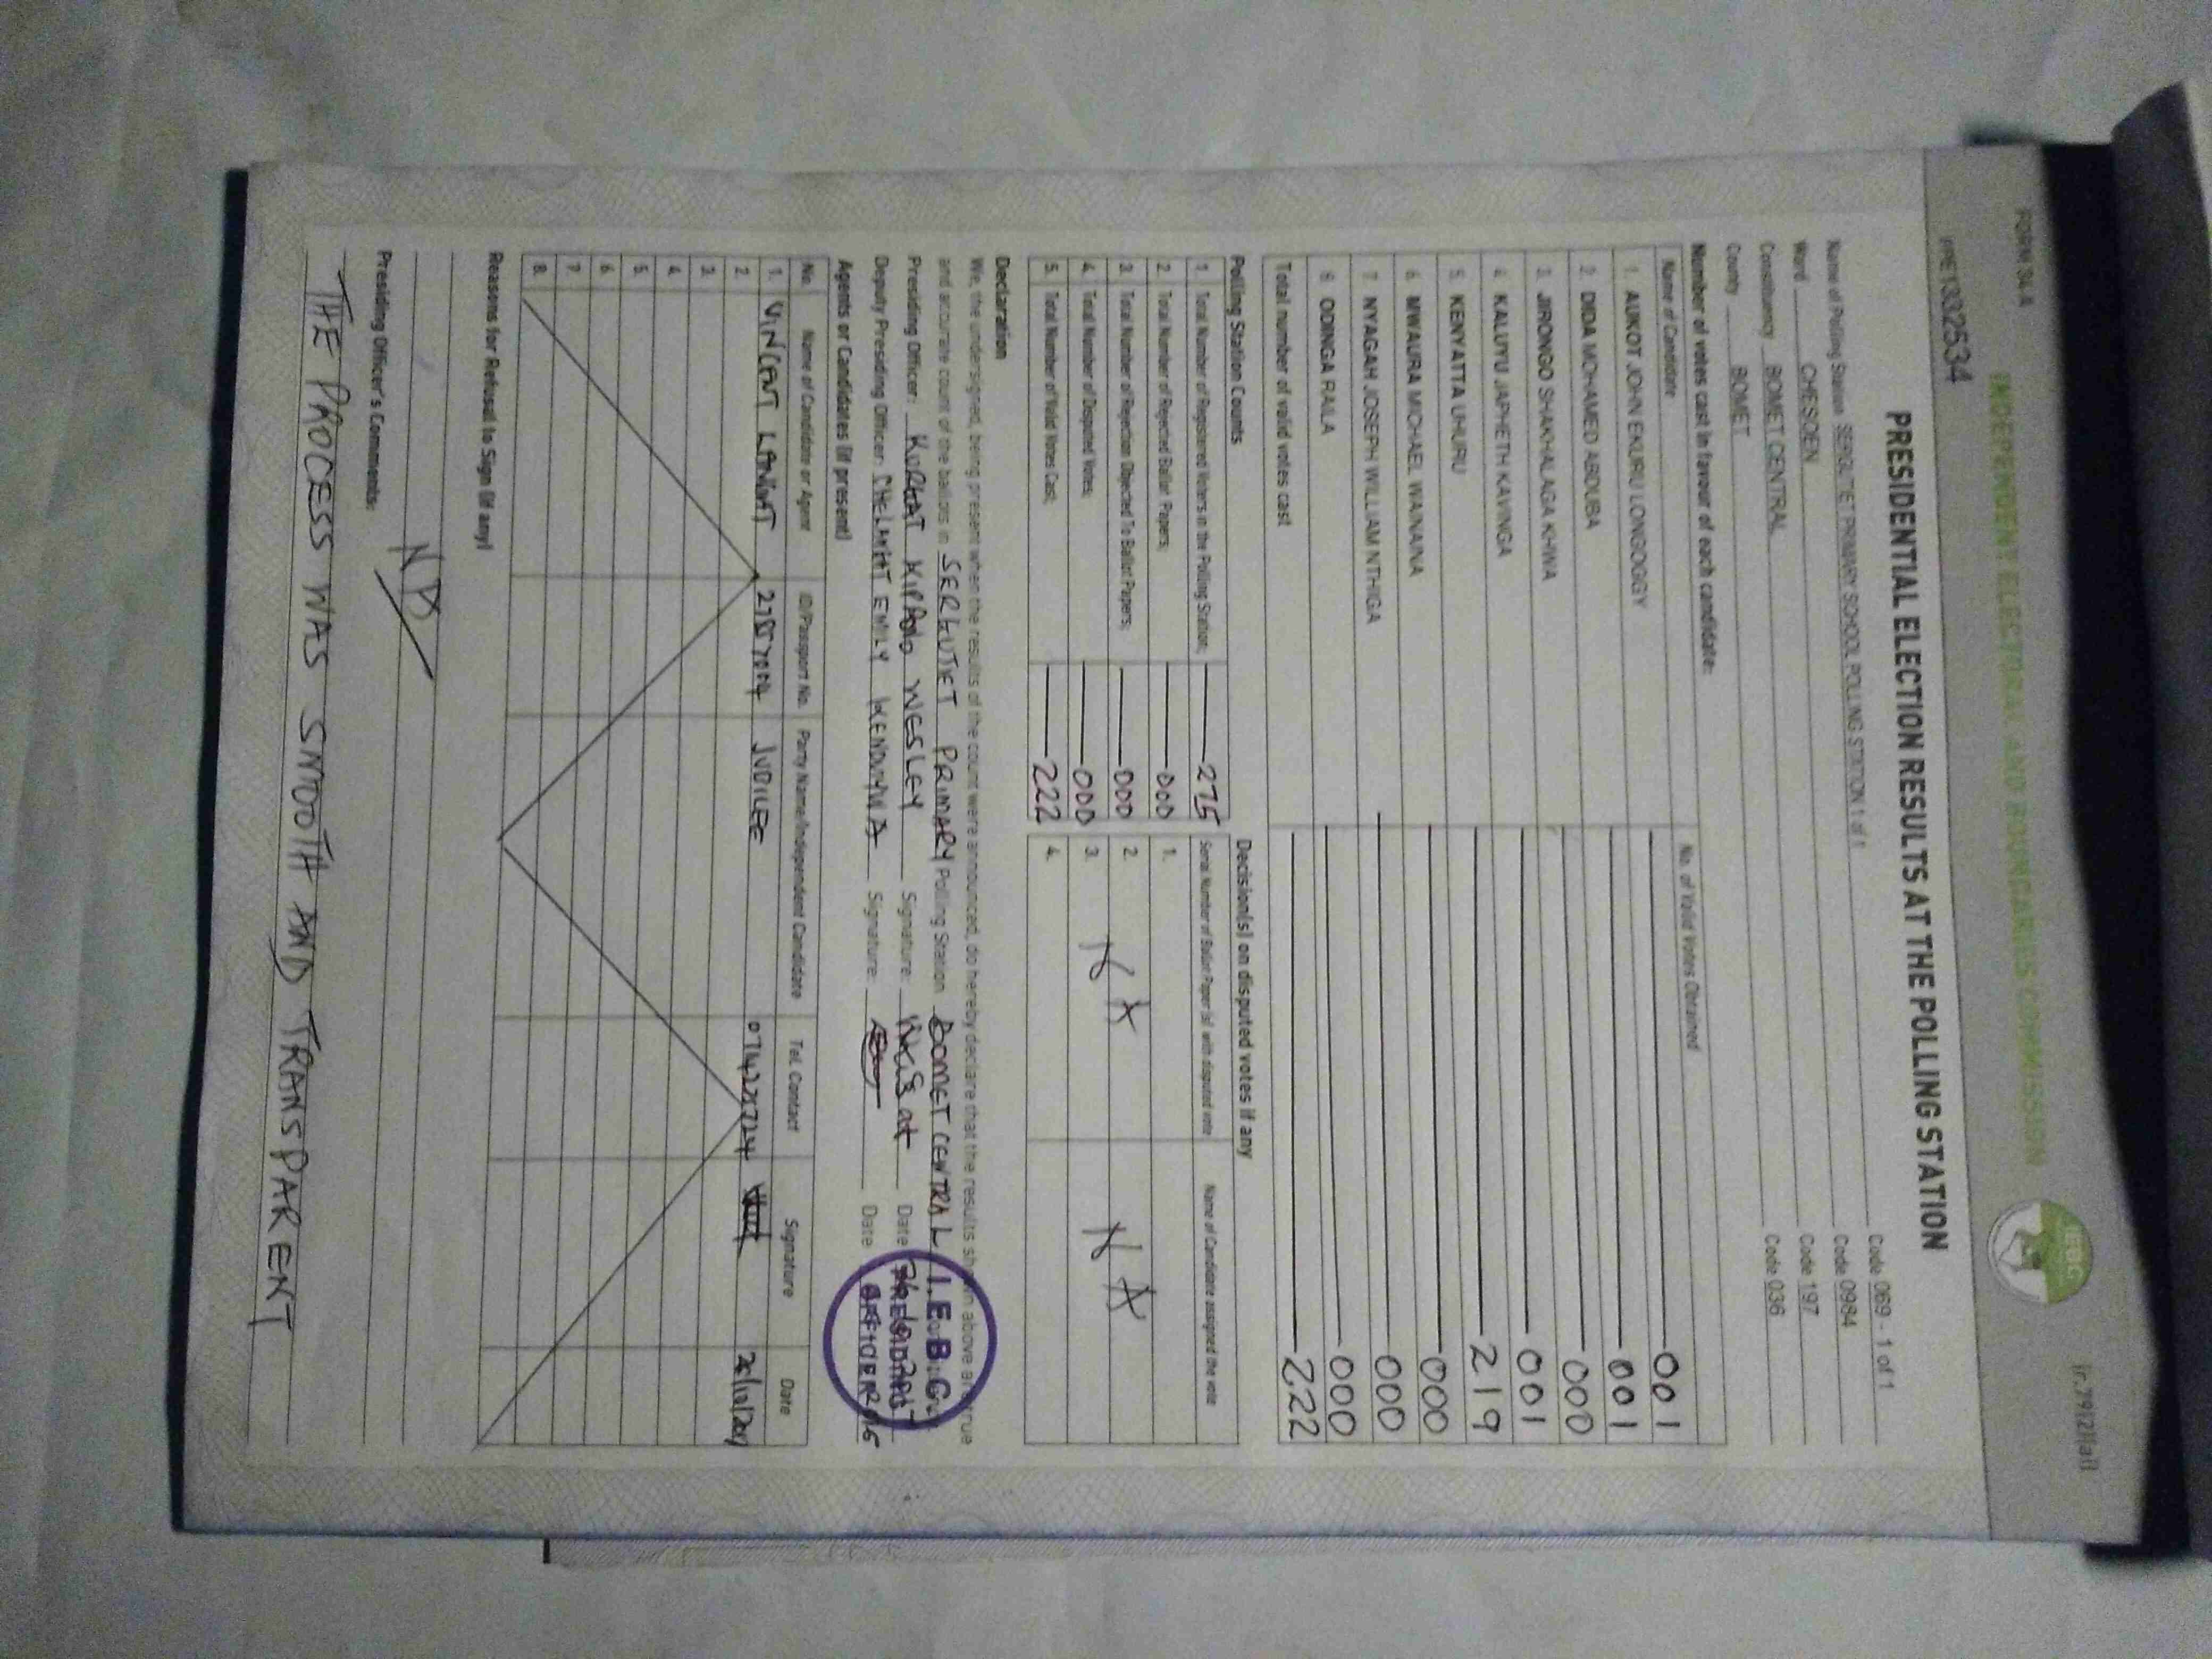 FORM 34A
(r.79(2)(a))
INDEPENDENT ELECTORAL AND BOUNDARIES COMMISSION
IEBC
PRE1332534
PRESIDENTIAL ELECTION RESULTS AT THE POLLING STATION
Name of Polling Station SERGUTIET PRIMARY SCHOOL POLLING STATION 1 of 1 Code 069 - 1 of 1
Ward CHESOEN Code 0984
Constituency BOMET CENTRAL Code 197
County BOMET Code 036
Number of votes cast in favour of each candidate:
Name of Candidate No. of Valid Votes Obtained
1. AUKOT JOHN EKURU LONGOGGY 001
2. DIDA MOHAMED ABDUBA 001
3. JIRONGO SHAKHALAGA KHWA 000
4. KALUYU JAPHETH KAVINGA 001
5. KENYATTA UHURU 219
6. MWAURA MICHAEL WAINAINA 000
7. NYAGAH JOSEPH WILLIAM NTHIGA 000
8. ODINGA RAILA 000
Total number of valid votes cast 222
Polling Station Counts
1. Total Number of Registered Voters in the Polling Station; 275
2. Total Number of Rejected Ballot Papers; 000
3. Total Number of Rejection Objected To Ballot Papers; 000
4. Total Number of Disputed Votes; 000
5. Total Number of Valid Votes Cast; 222
Decision(s) on disputed votes if any
Serial Number of Ballot Paper (s) with disputed vote Name of Candidate assigned the vote
1.
2.
3. N A N A
4.
Declaration
We, the undersigned, being present when the results of the count were announced, do hereby declare that the results shown above are true
and accurate count of the ballots in SERGUTIET PRIMARY Polling Station BOMET CENTRAL
Presiding Officer: KORGAT KIPROO WESLEY Signature: Date
Deputy Presiding Officer: CHELANGAT EMILY Signature: Date
I.E.B.C
PRESIDING
OFFICER
Agents or Candidates (if present)
No. Name of Candidate or Agent ID/Passport No. Party Name/Independent Candidate Tel. Contact Signature Date
1. VINCENT LANGAT JUBILEE 26/10/2017
2.
3.
4.
5.
6.
7.
8.
Reasons for Refusal to Sign (if any)
Presiding Officer's Comments:
THE PROCESS WAS SMOOTH AND TRANSPARENT